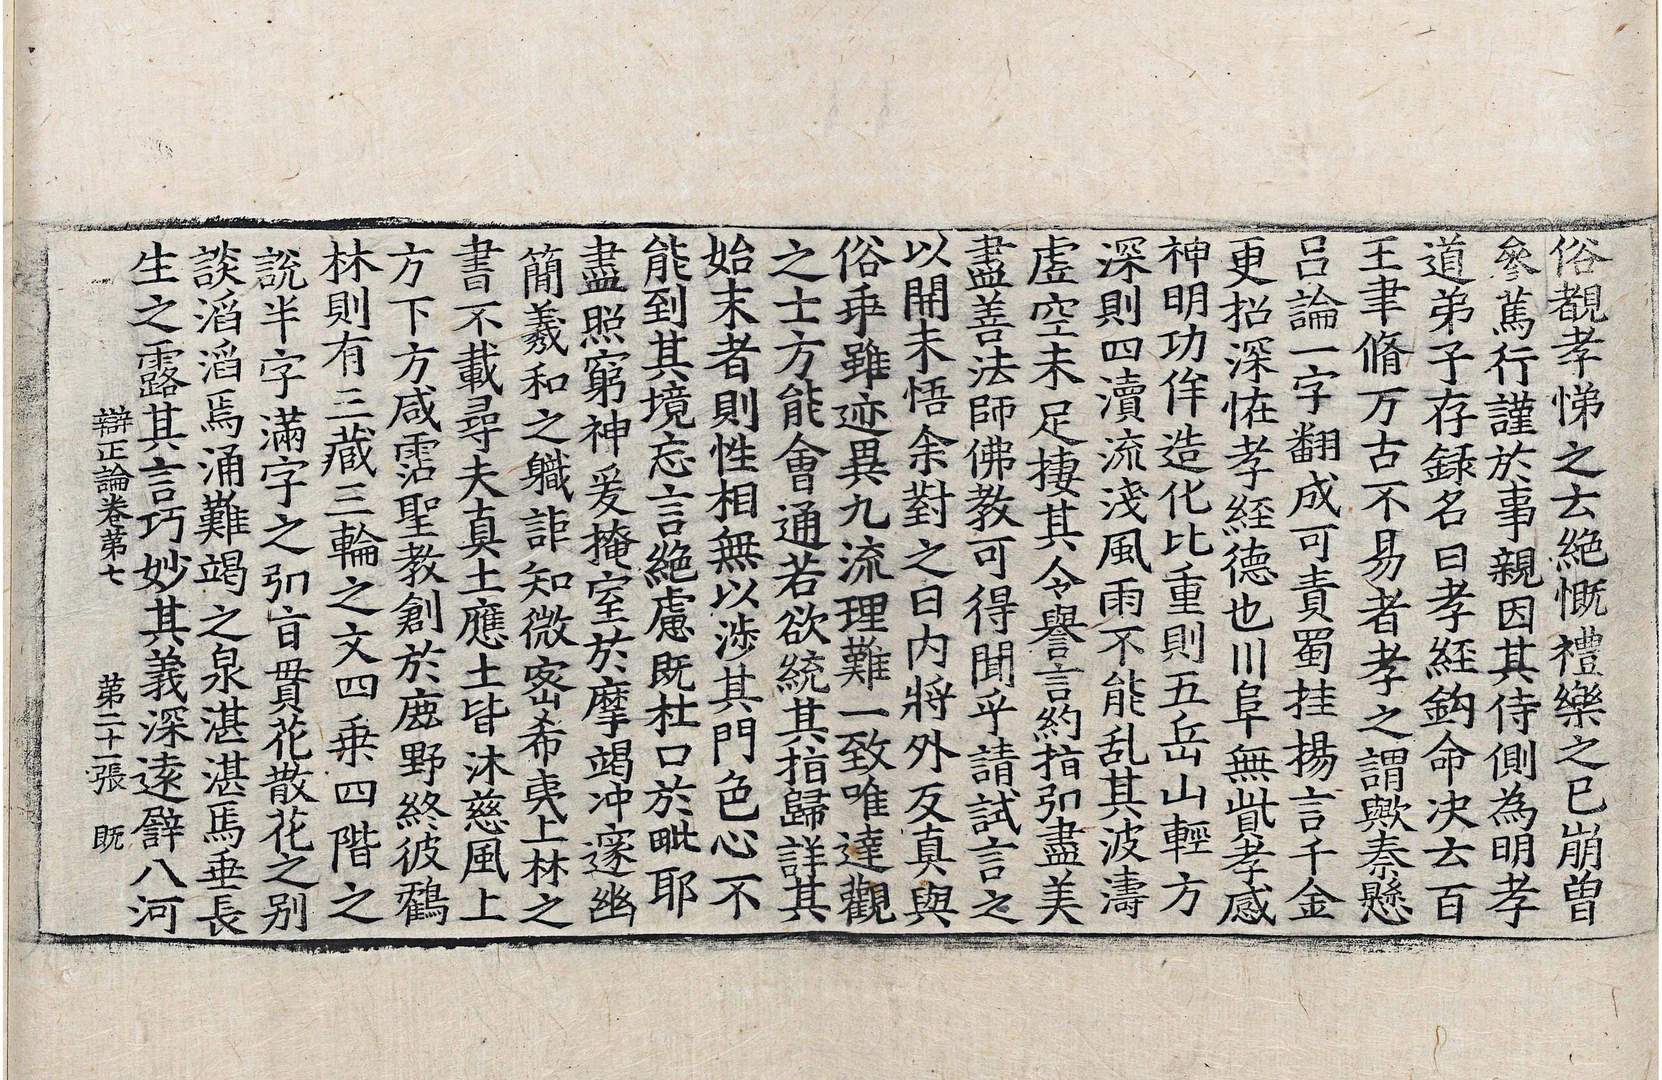 俗覩孝悌之去絶慨禮樂之已崩曽
叅篤行謹於事親因其侍側為明孝
道弟子存録名曰孝経鈎命决云百
王聿脩万古不易者孝之謂歟秦懸
呂論一字翻成可責蜀挂揚言千金
更招深恠孝経德也川阜無貲孝感
神明功侔造化比重則五岳山輕方
深則四瀆流淺風雨不能乱其波濤
虛空未足捿其令譽言約指弘盡美
盡善法師佛教可得聞乎請試言之
以開未悟余對之曰内將外反真與
俗乖雖迹異九流理難一致唯達觀
之士方能會通若欲統其指歸詳其
始末者則性相無以渉其門色心不
能到其境忘言絶慮既杜口於毗耶
盡照窮神爰掩室於摩竭冲邃幽
簡羲和之職詎知微密希夷上林之
書不載尋夫真土應土皆沐慈風上
方下方咸霑聖教創於鹿野終彼鶴
林則有三藏三輪之文四乗四階之
説半字滿字之弘旨貫花散花之别
談滔滔焉涌難竭之泉湛湛焉垂長
生之露其言巧妙其義深遠譬八河
辯正論卷第七 第二十一張 既